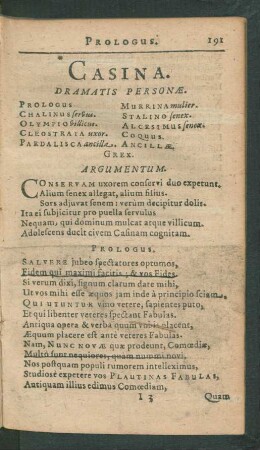 PROLOGUS. 191
CASINA.
DRAMATIS PERSONÆ.
PROLOGUS MURRINA mulier.
CHALINUS servus. STALINO senex.
OLYMPIO villicus. ALCESIMUS senex.
CLEOSTRATA uxor. COQUUS.
PARDALISCA ancilla. ANCILLÆ.
GREX.
ARGUMENTUM.
CONSERVAM uxorem conservi duo expetunt.
Alium senex allegat, alium filius.
Sors adjuvat senem: verùm decipitur dolis.
Ita ei subjicitur pro puella servulus
Nequam, qui dominum mulcat atque villicum.
Adolescens ducit civem Casinam cognitam.
PROLOGUS.
SALVERE jubeo spectatores optumos,
Fidem qui maximi facitis, & vos Fides.
Si verum dixi, signum clarum date mihi,
Ut vos mihi esse æquos jam inde à principio sciam.
QUI UTUNTUR vino vetere, sapientes puto,
Et qui libenter veteres spectant Fabulas.
Antiqua opera & verba quum vobis placent,
Æquum placere est ante veteres Fabulas.
Nam, NUNC NOVÆ quæ prodeunt, Comœdiæ,
Multò sunt nequiores, quàm nummi novi.
Nos postquam populi rumorem intelleximus,
Studiosè expetere vos PLAUTINAS FABULAS,
Antiquam illius edimus Comœdiam,
I 3 Quam